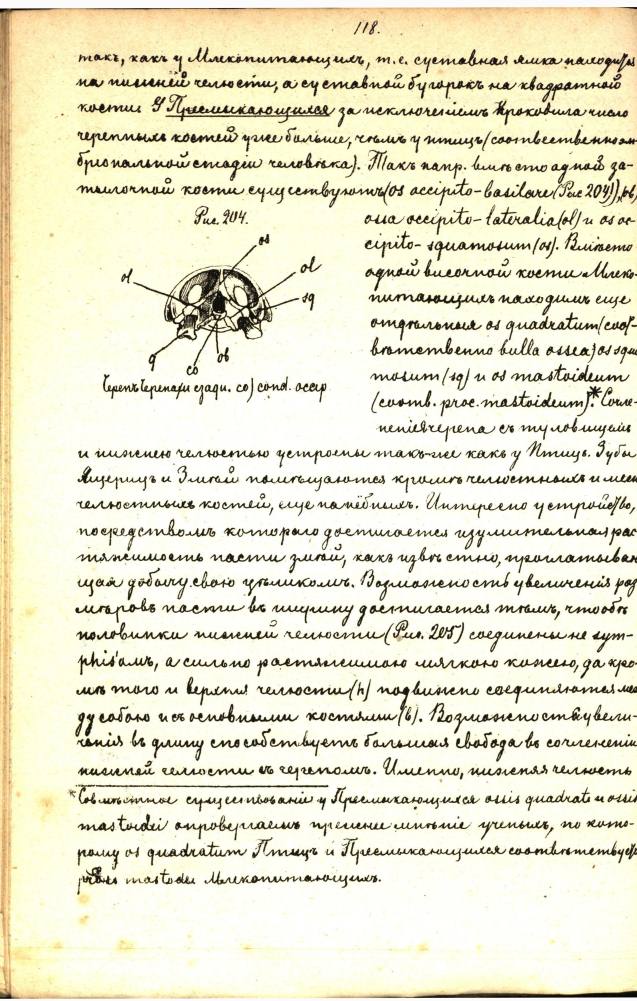 118.
такъ, какъ у Млекопитающихъ, т.е. суставная ямка находится
на нижней челюсти, а суставной бугорокъ на квадратной
кости. У Пресмыкающихся за исключенiемъ Крокодила число
черепныхъ костей уже больше, чѣмъ у птицъ (соотвественно эм-
брiональной стадiи человѣка). Такъ напр. вмѣсто одной за-
тылочной кости существуютъ (os occipito-basilare (Рис 204)), ob,
Рис. 204.
os
ol
ol
sq
q
co
ob
Черепъ Черепахи сзади. co) cond. occip
ossa occipito-lateralia (ol) и os oc-
cipito-squamosum (os). Вмѣсто
одной височной кости Млеко-
питающихъ находимъ еще
отдѣльныя os quadratum (соот-
вѣтственно bulla ossea) os squa
mosum (sq) и os mastoideum
(соотв. proc. mastoideum)*. Сочле-
ненiя черепа съ туловищемъ
и нижнею челюстью устроены такъ-же какъ у Птицъ. Зубы
Ящерицъ и Змѣй помѣщаются кромѣ челюстныхъ и меж
челюстныхъ костей, еще на нёбныхъ. Интересно устройство,
посредствомъ котораго достигается изумительная рас
тяжимость пасти змѣй, какъ извѣстно, проглатываю
щая добычу свою цѣликомъ. Возможность увеличенiя раз
мѣровъ пасти въ ширину достигается тѣмъ, что обѣ
половинки нижней челюсти (Рис. 205) соединены не sym-
phis'омъ, а сильно растяжимою мягкою кожею, да кро-
мѣ того и верхнiя челюсти (h) подвижно соединяются меж
ду собою и съ основными костями (b). Возможности увели-
ченiя въ длину способствуетъ большая свобода въ сочлененiи
нижней челюсти съ черепомъ. Именно, нижняя челюсть
* Совмѣстное существованiе у Пресмыкающихся ossis quadrati и ossis
mastoidei опровергаетъ прежнее мнѣнiе ученыхъ, по кото-
рому os quadratum Птицъ и Пресмыкающихся соотвѣтствуетъ
mastoidei Млекопитающихъ.